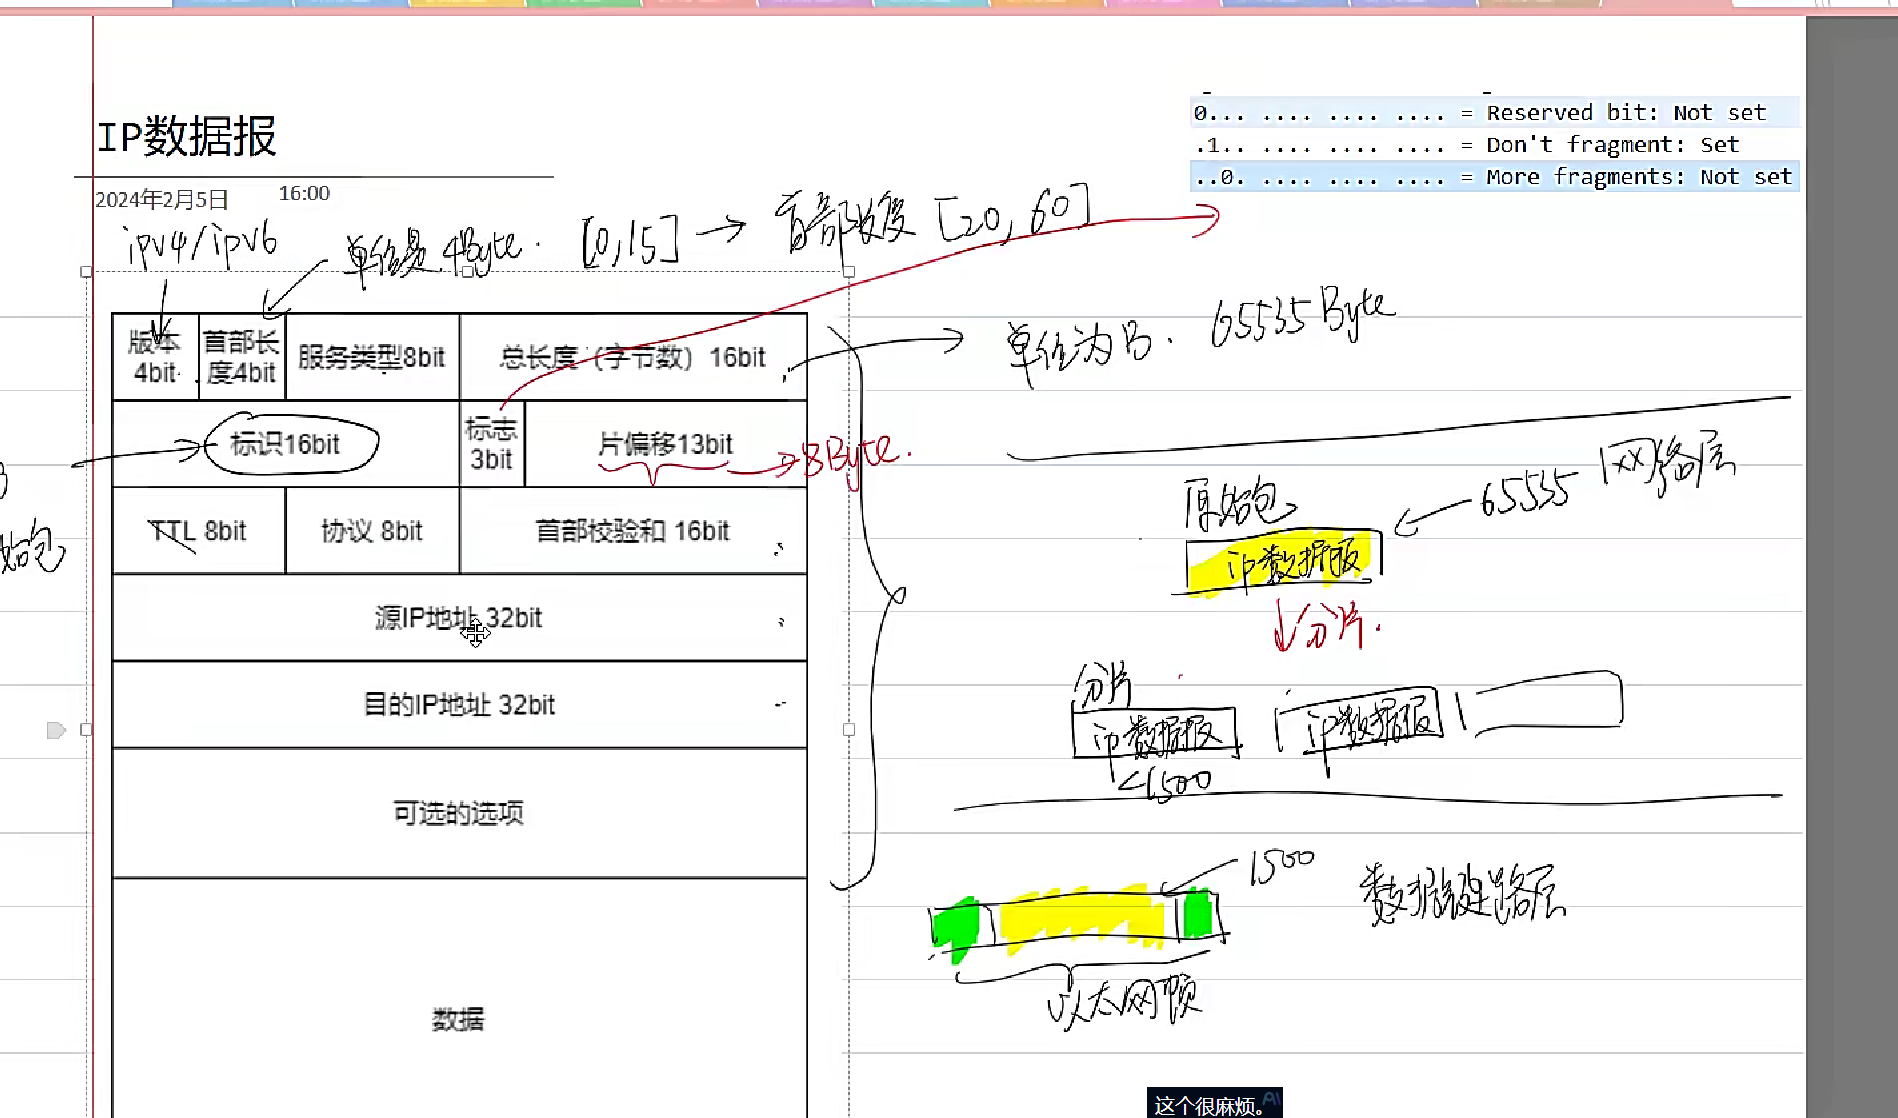 IP数据报
2024年2月5日 16:00
0... .... .... .... = Reserved bit: Not set
.1.. .... .... .... = Don't fragment: Set
..0. .... .... .... = More fragments: Not set
ipv4/ipv6
单位是.4Byte. [0,15] → 首部长度 [20,60]
版本 4bit
首部长度4bit
服务类型8bit
总长度（字节数）16bit
单位为B. 65535Byte
标识16bit
标志 3bit
片偏移13bit
8Byte.
始包
TTL 8bit
协议 8bit
首部校验和 16bit
源IP地址 32bit
目的IP地址 32bit
可选的选项
数据
网络层
原始包
65535
ip数据报
分片.
分片
ip数据报
ip数据报
<1500
1500
数据链路层
以太网帧
这个很麻烦。